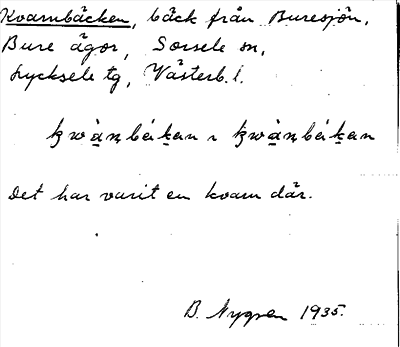 Kvarnbäcken, bäck från Buresjön,
Bure ägor, Sorsele sn,
Lycksele tg, Västerb. l.
Det har varit en kvarn där.
B. Nygren 1935.